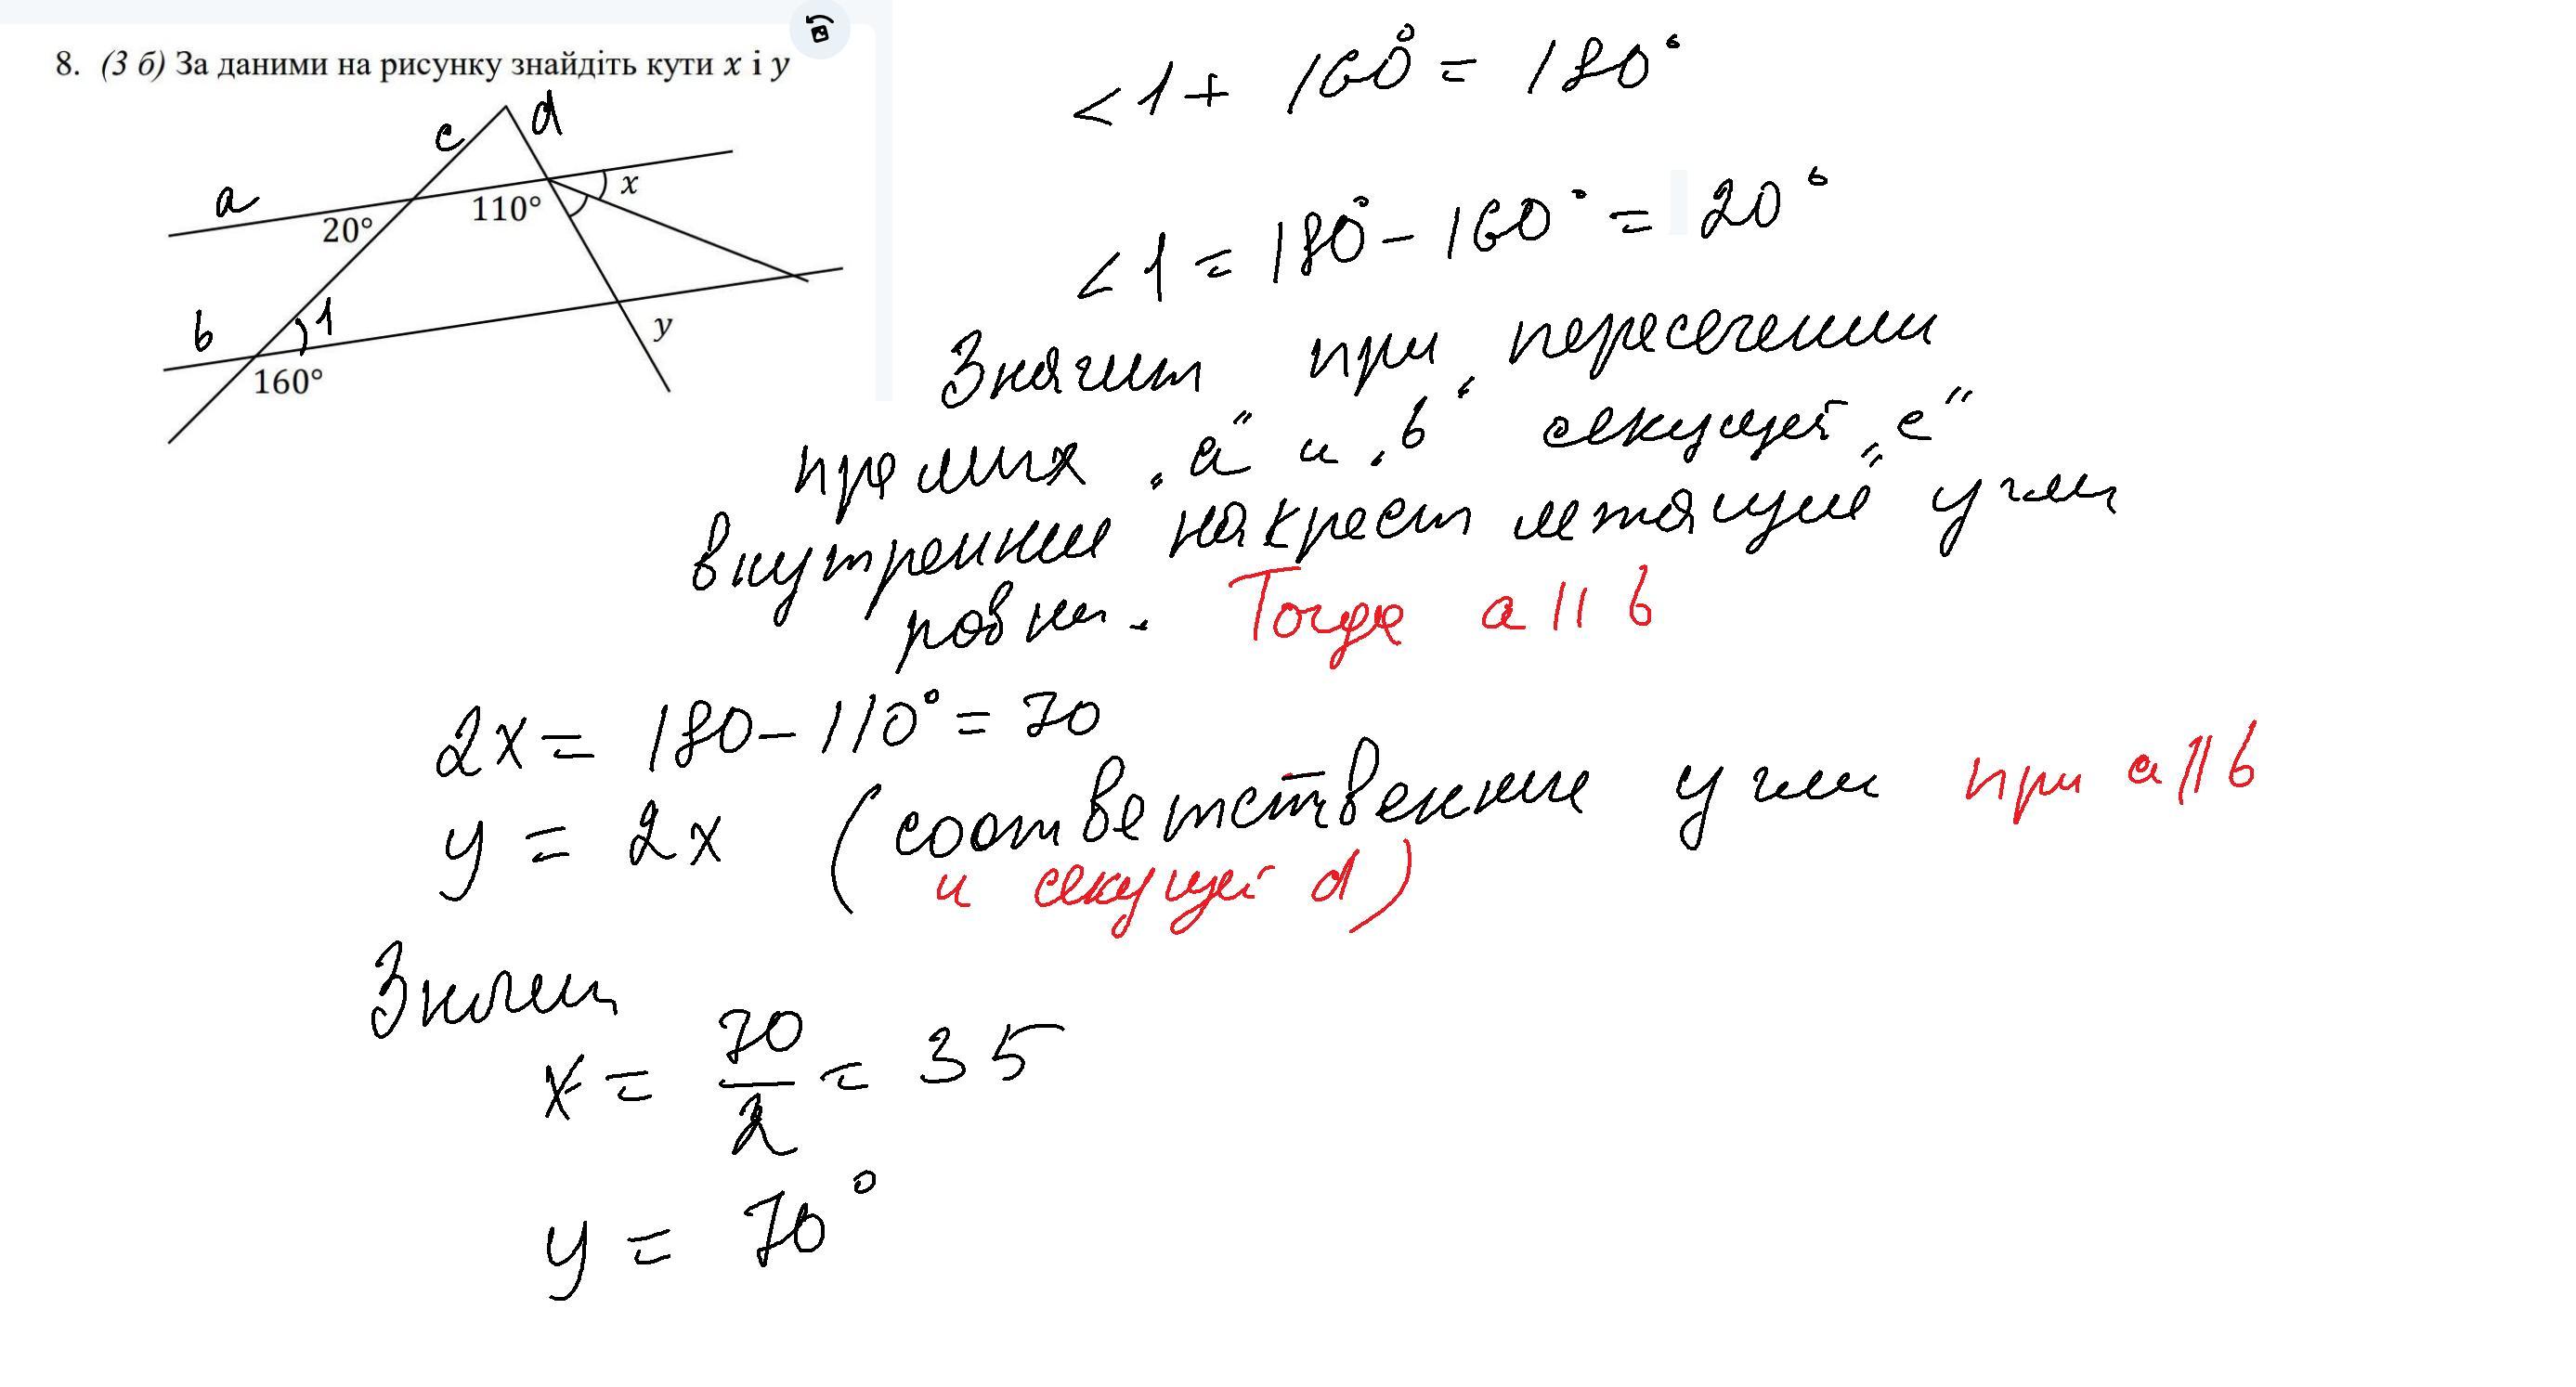 8. (3 б) За даними на рисунку знайдіть кути x і y
c d
a
20° 110° x
b 1 y
160°
<1 + 160° = 180°
<1 = 180° - 160° = 20°
Значит при пересечении
прямих "a" и "b" секущей "c"
внутренние "накрест лежащие" угли
равни. Тогда a || b
2x = 180 - 110° = 70
y = 2x (соответственние угли при a || b
и секущей d)
Значит
x = 70/2 = 35
y = 70°